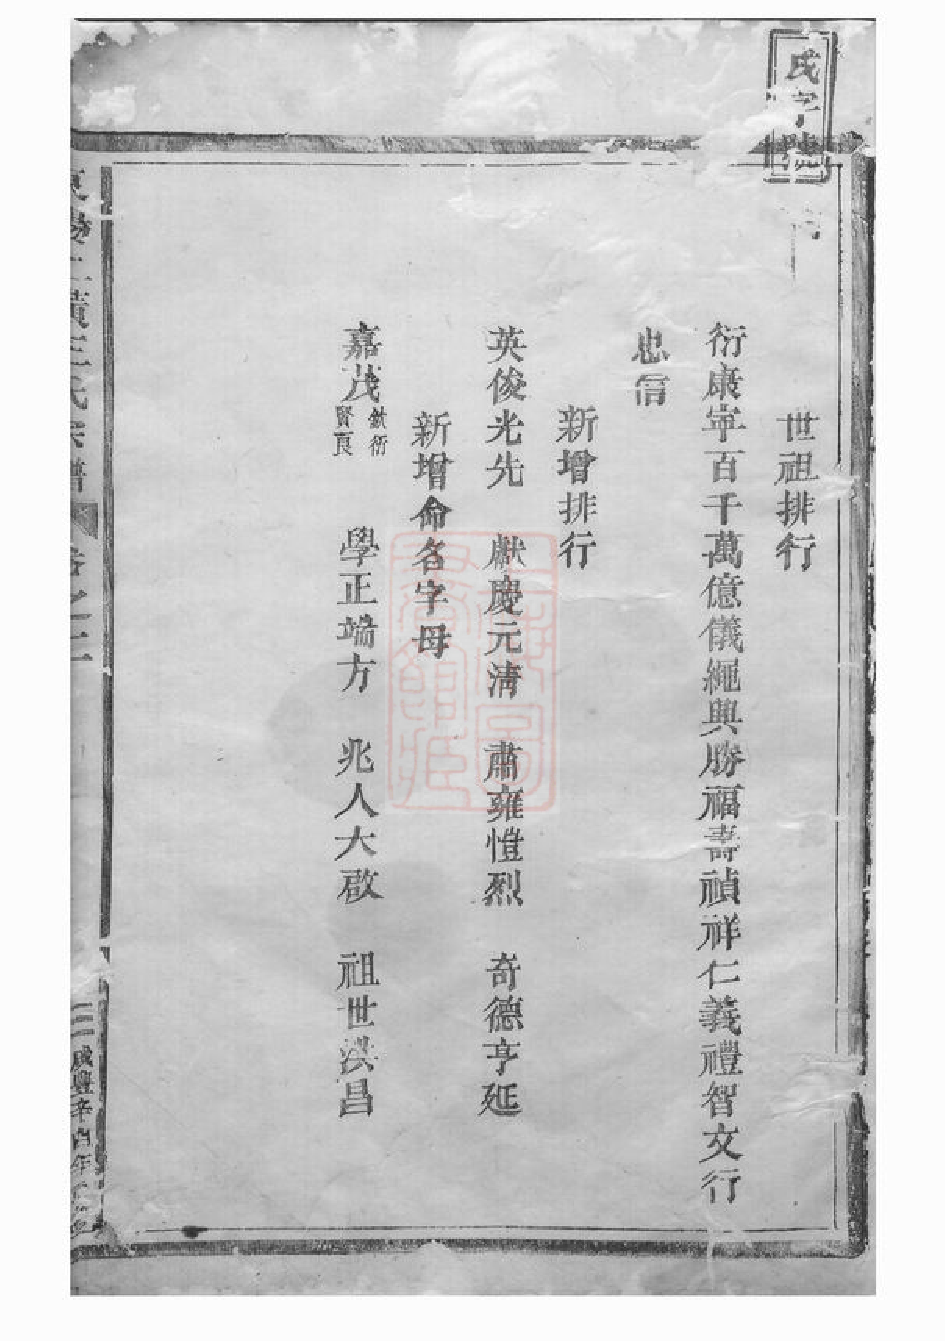 世祖排行
衍康寧百千萬億儀繩興勝福壽禎祥仁義禮智文行
忠信
新增排行
英俊光先 獻慶元淸 肅雍愷烈 奇德亨延
新增命名字母
嘉茂 欽衍 賢良 學正端方 兆人大啟 祖世洪昌
東陽上璜王氏宗譜 卷之二 三 咸豐辛酉年
氏字號